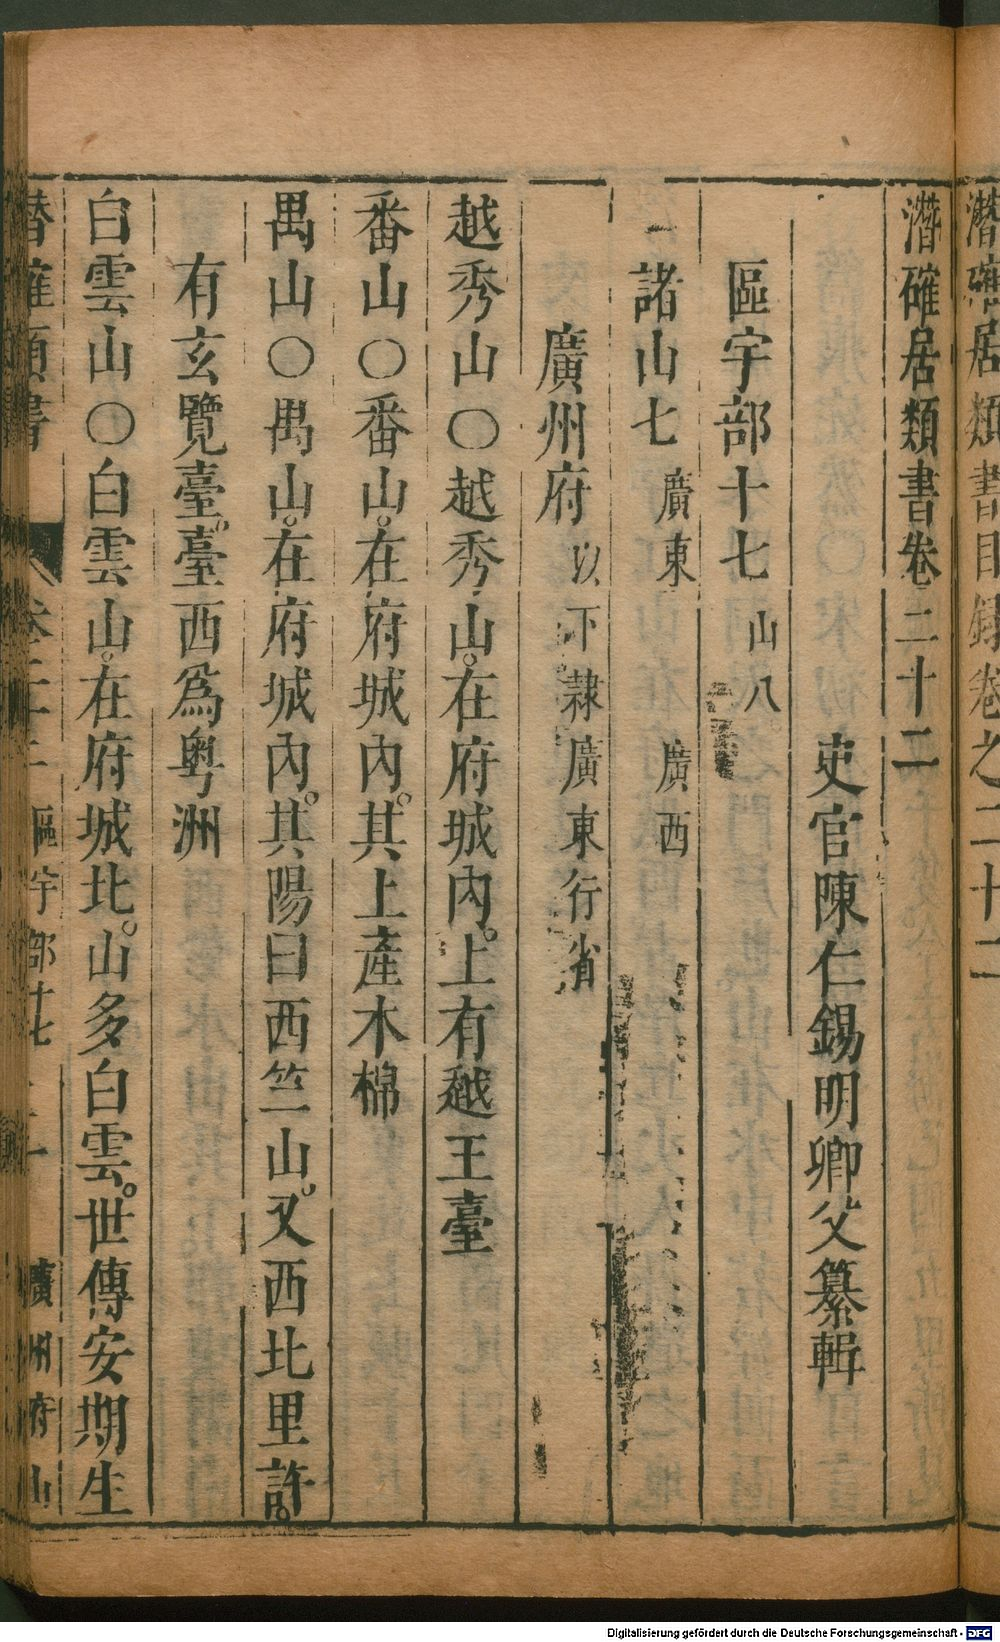 潛確居類書目錄卷之二十二
潛確居類書卷二十二
史官陳仁錫明卿父纂輯
區宇部十七 山八
諸山七 廣東 廣西
廣州府 以下隸廣東行省
越秀山〇越秀山。在府城內。上有越王臺
番山〇番山。在府城內。其上產木棉
禺山〇禺山。在府城內。其陽曰西竺山。又西北里許。
有玄覽臺。臺西爲粤洲
白雲山〇白雲山。在府城北。山多白雲。世傳安期生
潛確類書 卷二十二 區宇部十七 廣州府山
Digitalisierung gefördert durch die Deutsche Forschungsgemeinschaft - DFG